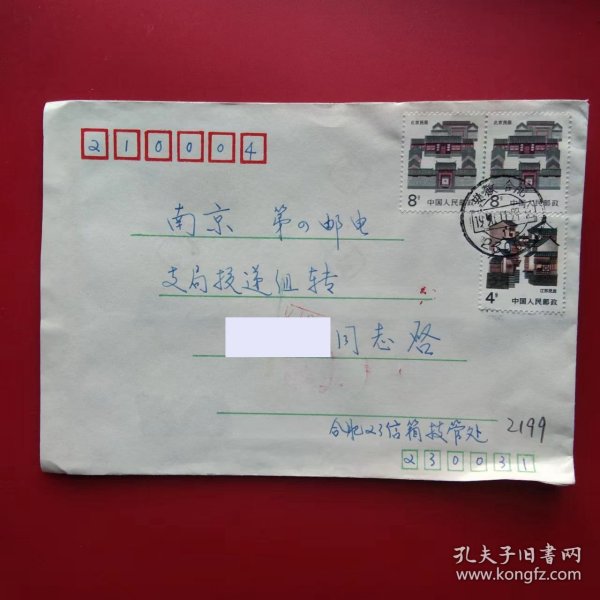 210004
北京民居
8分
中国人民邮政
北京民居
8分
中国人民邮政
安徽 合肥
江苏民居
4分
中国人民邮政
南京 第四邮电
支局投递组转
同志启
合肥23信箱技管处 2199
230031
孔夫子旧书网
www.kongfz.com